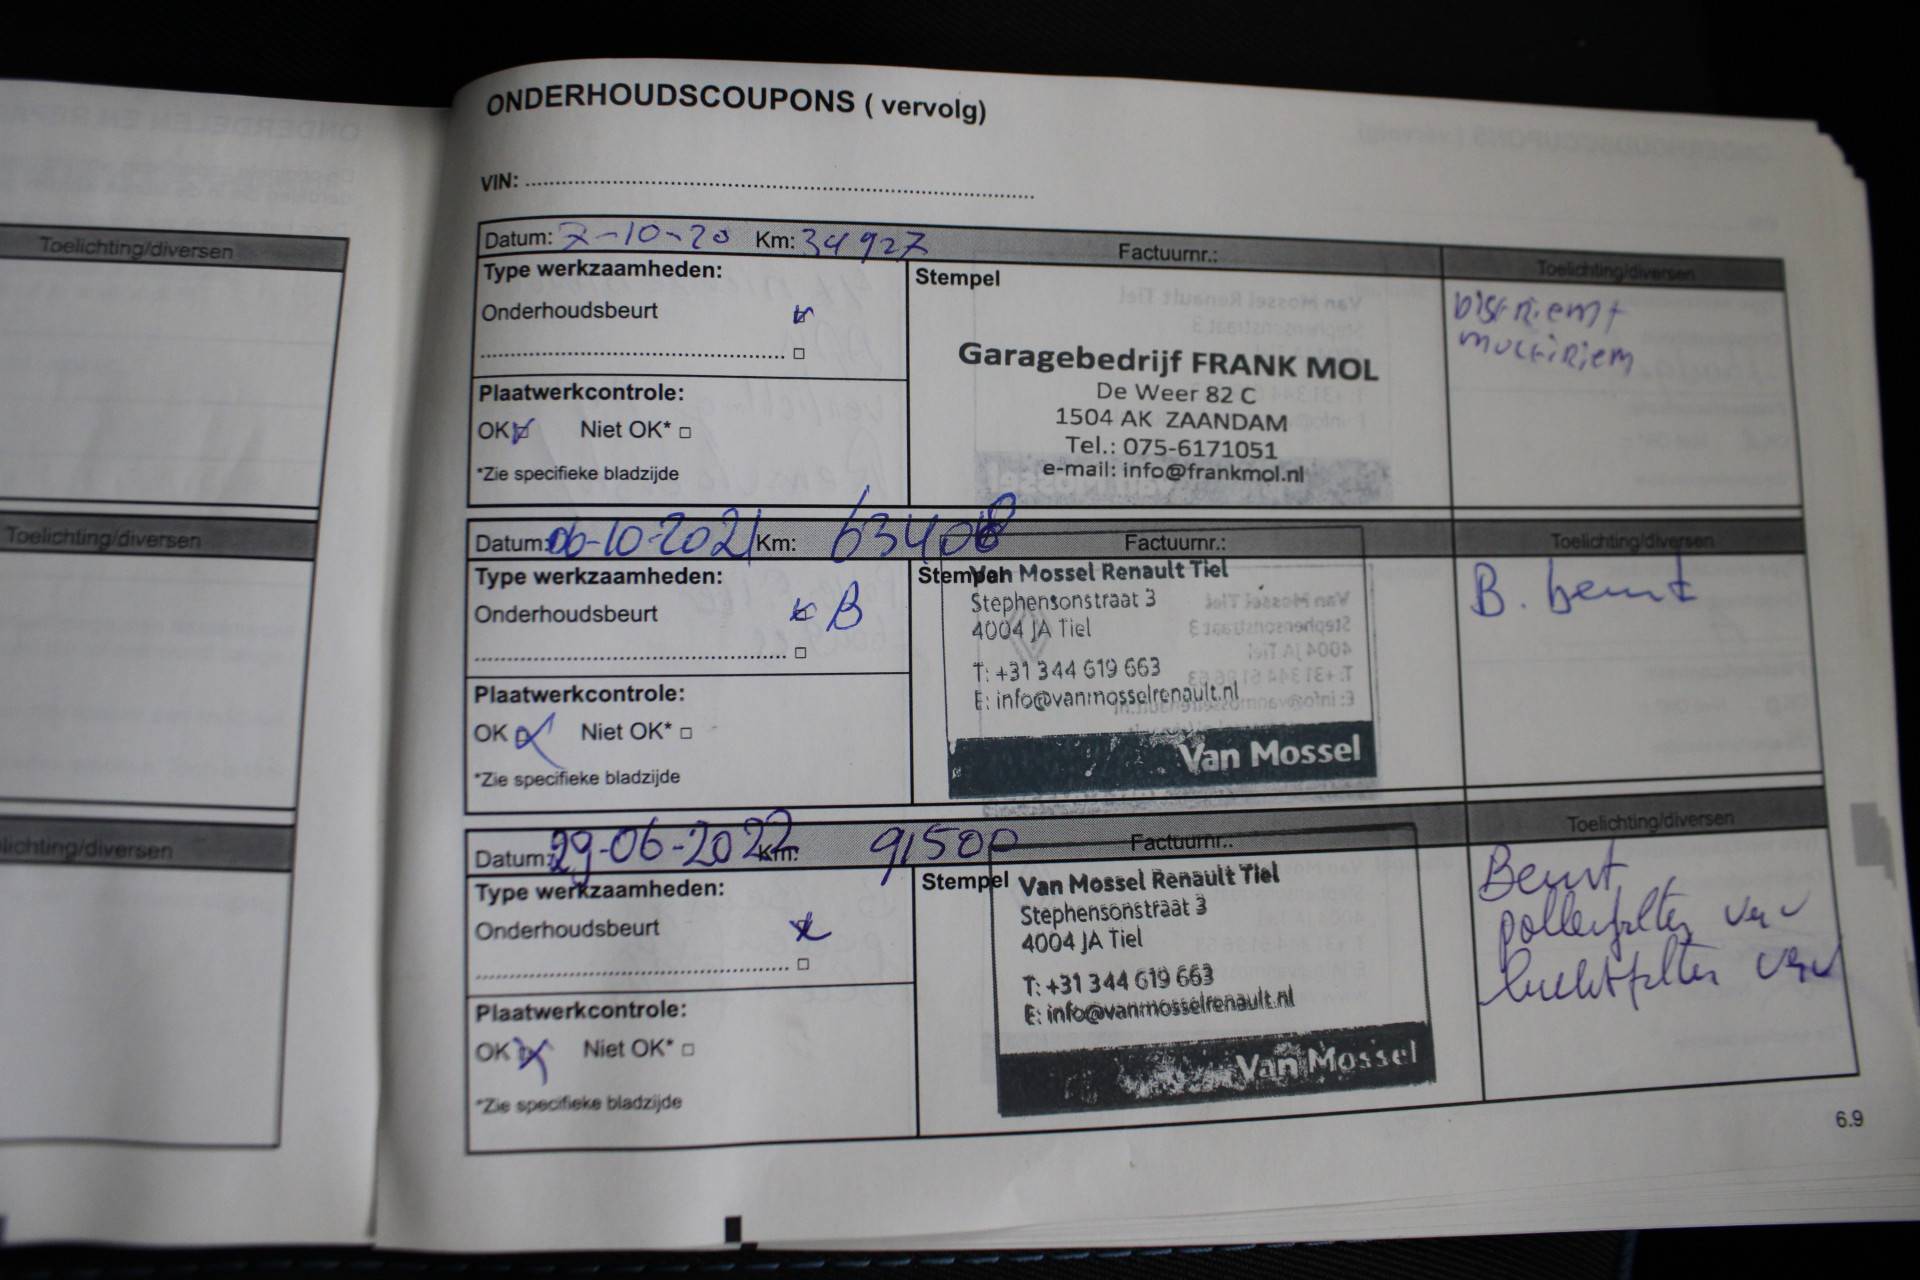 Toelichting/diversen
Toelichting/diversen
lichting/diversen
ONDERHOUDSCOUPONS ( vervolg)
VIN:
Datum: 7-10-20 Km: 34927 Factuurnr.: Toelichting/diversen
Type werkzaamheden:
Onderhoudsbeurt
Plaatwerkcontrole:
OK Niet OK*
*Zie specifieke bladzijde
Stempel
Garagebedrijf FRANK MOL
De Weer 82 C
1504 AK ZAANDAM
Tel.: 075-6171051
e-mail: info@frankmol.nl
Distriem +
multiriem
Datum: 06-10-2021 Km: 63408 Factuurnr.: Toelichting/diversen
Type werkzaamheden:
Onderhoudsbeurt B
Plaatwerkcontrole:
OK Niet OK*
*Zie specifieke bladzijde
Stempel
Van Mossel Renault Tiel
Stephensonstraat 3
4004 JA Tiel
T: +31 344 619 663
E: info@vanmosselrenault.nl
Van Mossel
B. beurt
Datum: 29-06-2022 Km: 91500 Factuurnr.: Toelichting/diversen
Type werkzaamheden:
Onderhoudsbeurt
Plaatwerkcontrole:
OK Niet OK*
*Zie specifieke bladzijde
Stempel
Van Mossel Renault Tiel
Stephensonstraat 3
4004 JA Tiel
T: +31 344 619 663
E: info@vanmosselrenault.nl
Van Mossel
Beurt
pollenfilter verv
luchtfilter verv
6.9